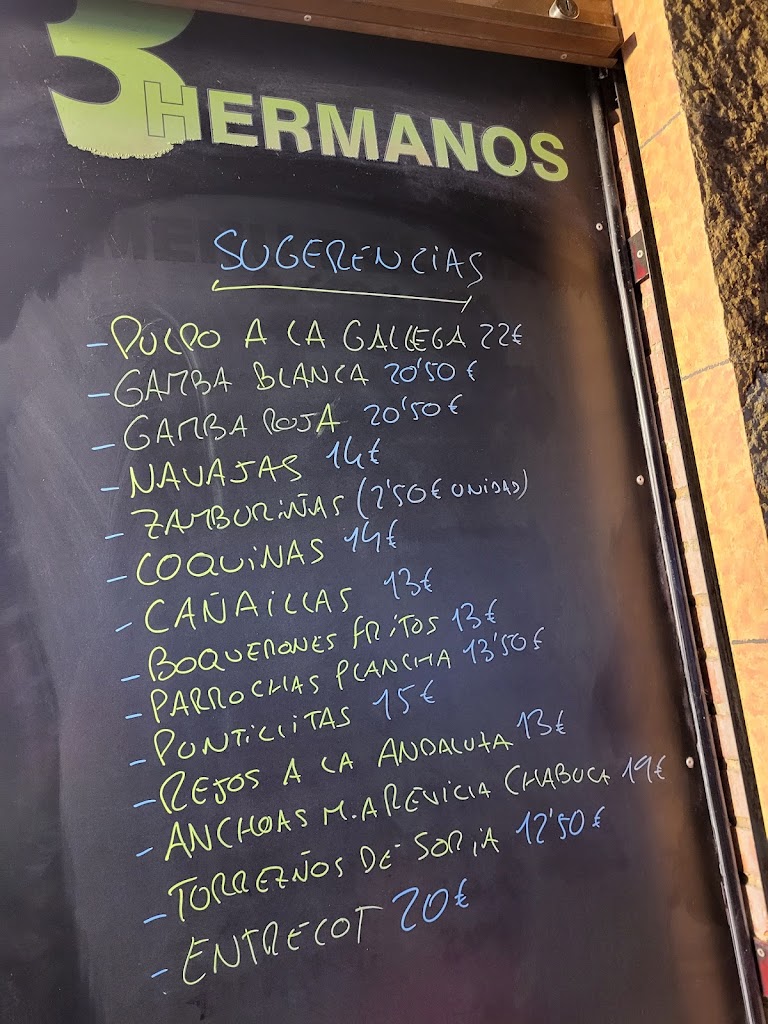 3 HERMANOS
SUGERENCIAS
- PULPO A LA GALLEGA 22€
- GAMBA BLANCA 20'50€
- GAMBA ROJA 20'50€
- NAVAJAS 14€
- ZAMBURIÑAS (2'50€ UNIDAD)
- COQUINAS 14€
- CAÑAILLAS 13€
- BOQUERONES FRITOS 13€
- PARROCHAS PLANCHA 13'50€
- PUNTILLITAS 15€
- REJOS A LA ANDALUZA 13€
- ANCHOAS M.AREVICIA CHABUCA 19€
- TORREZÑOS DE SORIA 12'50€
- ENTRECOT 20€